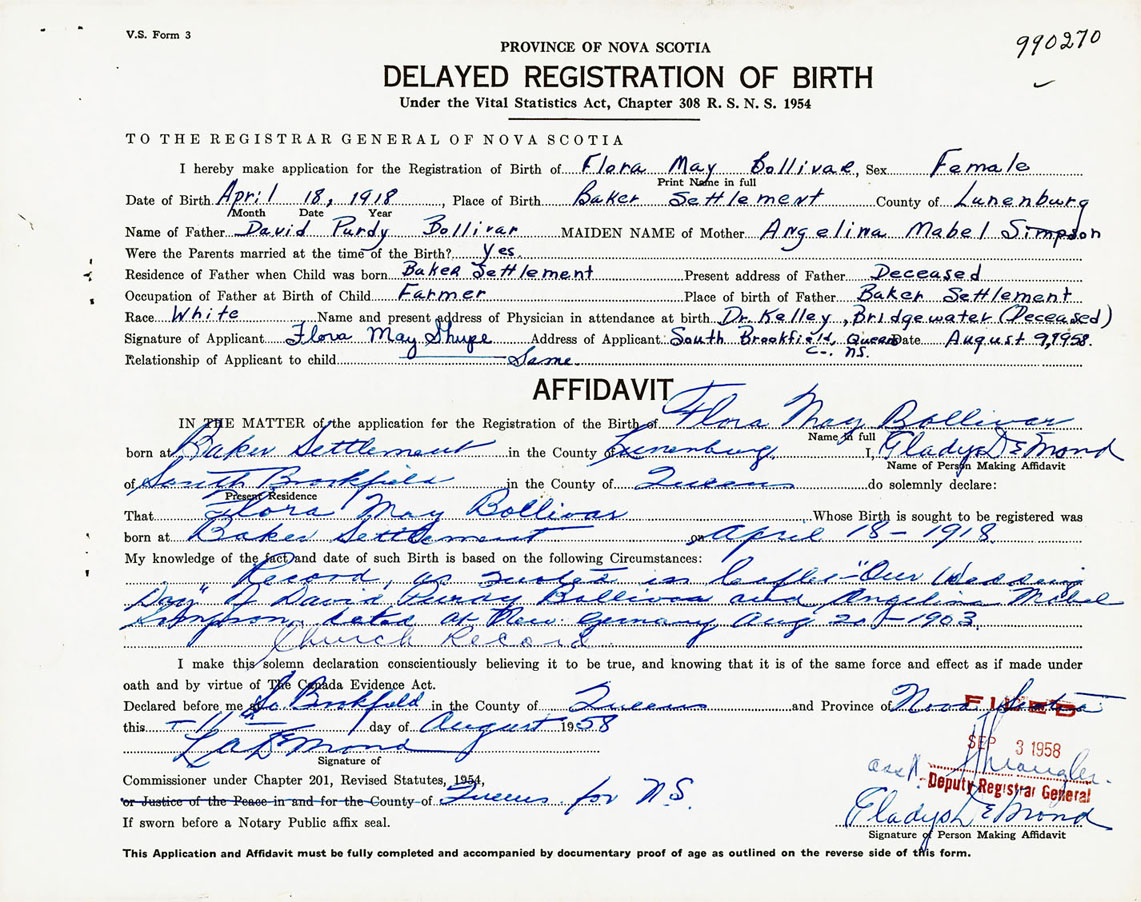 V.S. Form 3
990270
PROVINCE OF NOVA SCOTIA
DELAYED REGISTRATION OF BIRTH
Under the Vital Statistics Act, Chapter 308 R. S. N. S. 1954
TO THE REGISTRAR GENERAL OF NOVA SCOTIA
I hereby make application for the Registration of Birth of Flora May Bollivar, Sex Female
Print Name in full
Date of Birth April 18, 1918, Place of Birth Baker Settlement County of Lunenburg
Month Date Year
Name of Father David Purdy Bollivar MAIDEN NAME of Mother Angelina Mabel Simpson
Were the Parents married at the time of the Birth? Yes.
Residence of Father when Child was born Baker Settlement Present address of Father Deceased
Occupation of Father at Birth of Child Farmer Place of birth of Father Baker Settlement
Race White Name and present address of Physician in attendance at birth Dr. Kelley, Bridgewater (Deceased)
Signature of Applicant Flora May Shupe Address of Applicant South Brookfield, Queens Date August 9, 1958.
Co. NS.
Relationship of Applicant to child Same.
AFFIDAVIT
IN THE MATTER of the application for the Registration of the Birth of Flora May Bollivar
Name in full
born at Baker Settlement in the County of Lunenburg, I, Gladys DeMond
Name of Person Making Affidavit
of South Brookfield in the County of Queens do solemnly declare:
Present Residence
That Flora May Bollivar Whose Birth is sought to be registered was
born at Baker Settlement on April 18 - 1918.
My knowledge of the fact and date of such Birth is based on the following Circumstances:
Record, as quoted in leaflet "Our Wedding
Day" of David Purdy Bollivar and Angelina Mabel
Simpson, dated at New Germany Aug 20 - 1903.
Church Record
I make this solemn declaration conscientiously believing it to be true, and knowing that it is of the same force and effect as if made under
oath and by virtue of The Canada Evidence Act.
Declared before me at So Brookfield in the County of Queens and Province of Nova Scotia
this 11th day of August 1958
L A DeMond
Signature of
Commissioner under Chapter 201, Revised Statutes, 1954,
or Justice of the Peace in and for the County of Queens for N.S.
If sworn before a Notary Public affix seal.
FILED
SEP 3 1958
Ass't
Deputy Registrar General
Gladys DeMond
Signature of Person Making Affidavit
This Application and Affidavit must be fully completed and accompanied by documentary proof of age as outlined on the reverse side of this form.